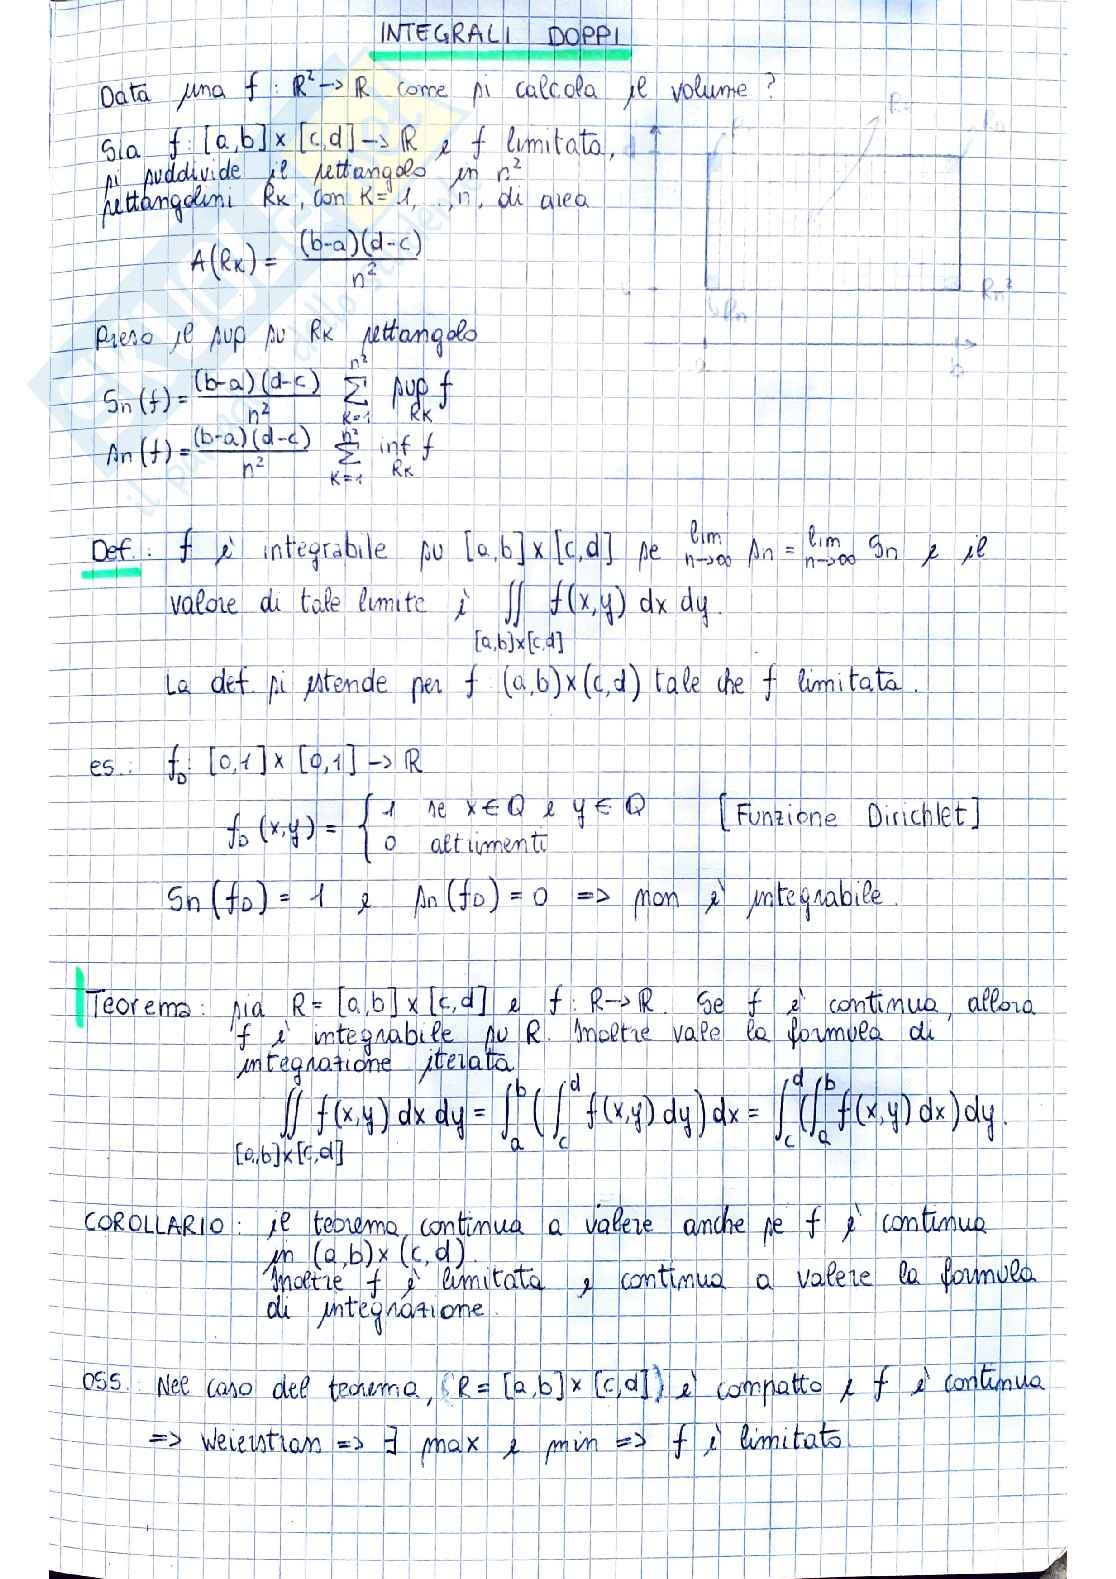 INTEGRALI DOPPI
Data una f : R² → R come si calcola il volume ?
Sia f: [a,b] x [c,d] → R e f limitata,
si suddivide il rettangolo in n²
rettangolini Rk, con K= 1, .., n, di area
A(Rk) = (b-a)(d-c) / n²
Preso il sup su Rk rettangolo
Sn (f) = (b-a)(d-c) / n² Σ_{K=1}^{n²} sup_{Rk} f
sn (f) = (b-a)(d-c) / n² Σ_{K=1}^{n²} inf_{Rk} f
Rn²
Rn
a b
Def.: f è integrabile su [a,b] x [c,d] se lim_{n→∞} sn = lim_{n→∞} Sn e il
valore di tale limite è ∬_{[a,b]x[c,d]} f(x,y) dx dy.
La def. si estende per f : (a,b)x(c,d) tale che f limitata.
es.: f_D: [0,1] x [0,1] → R
f_D (x,y) = { 1 se x ∈ Q e y ∈ Q [Funzione Dirichlet]
0 altrimenti
Sn (f_D) = 1 e sn (f_D) = 0 => non è integrabile.
Teorema: sia R = [a,b] x [c,d] e f : R → R. Se f è continua, allora
f è integrabile su R. Inoltre vale la formula di
integrazione iterata
∬_{[a,b]x[c,d]} f(x,y) dx dy = ∫_a^b (∫_c^d f(x,y) dy) dx = ∫_c^d (∫_a^b f(x,y) dx) dy.
COROLLARIO: il teorema continua a valere anche se f è continua
in (a,b) x (c,d).
Inoltre f è limitata e continua a valere la formula
di integrazione.
OSS. Nel caso del teorema, (R = [a,b] x [c,d]) è compatto e f è continua
=> Weierstrass => ∃ max e min => f è limitato